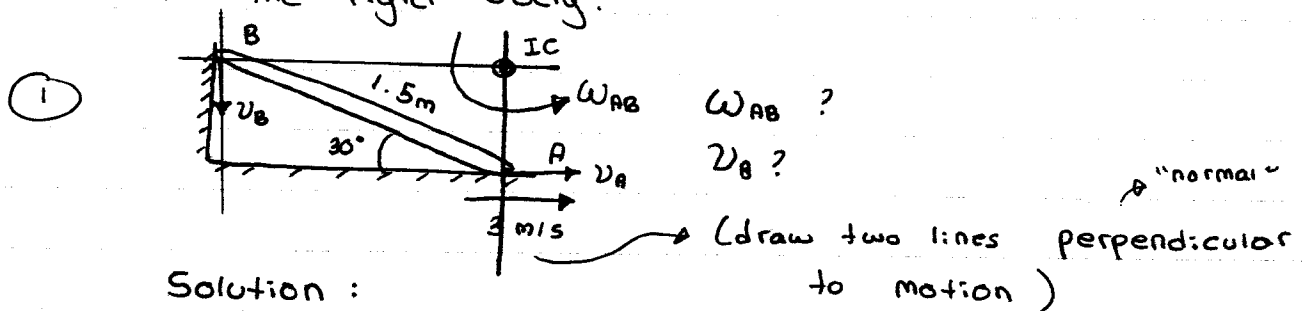 the rigid body.
1
B
IC
1.5m
ω_AB
ω_AB ?
υ_B
30°
A
υ_A
υ_B ?
"normal"
3 m/s
(draw two lines perpendicular
to motion)
Solution :